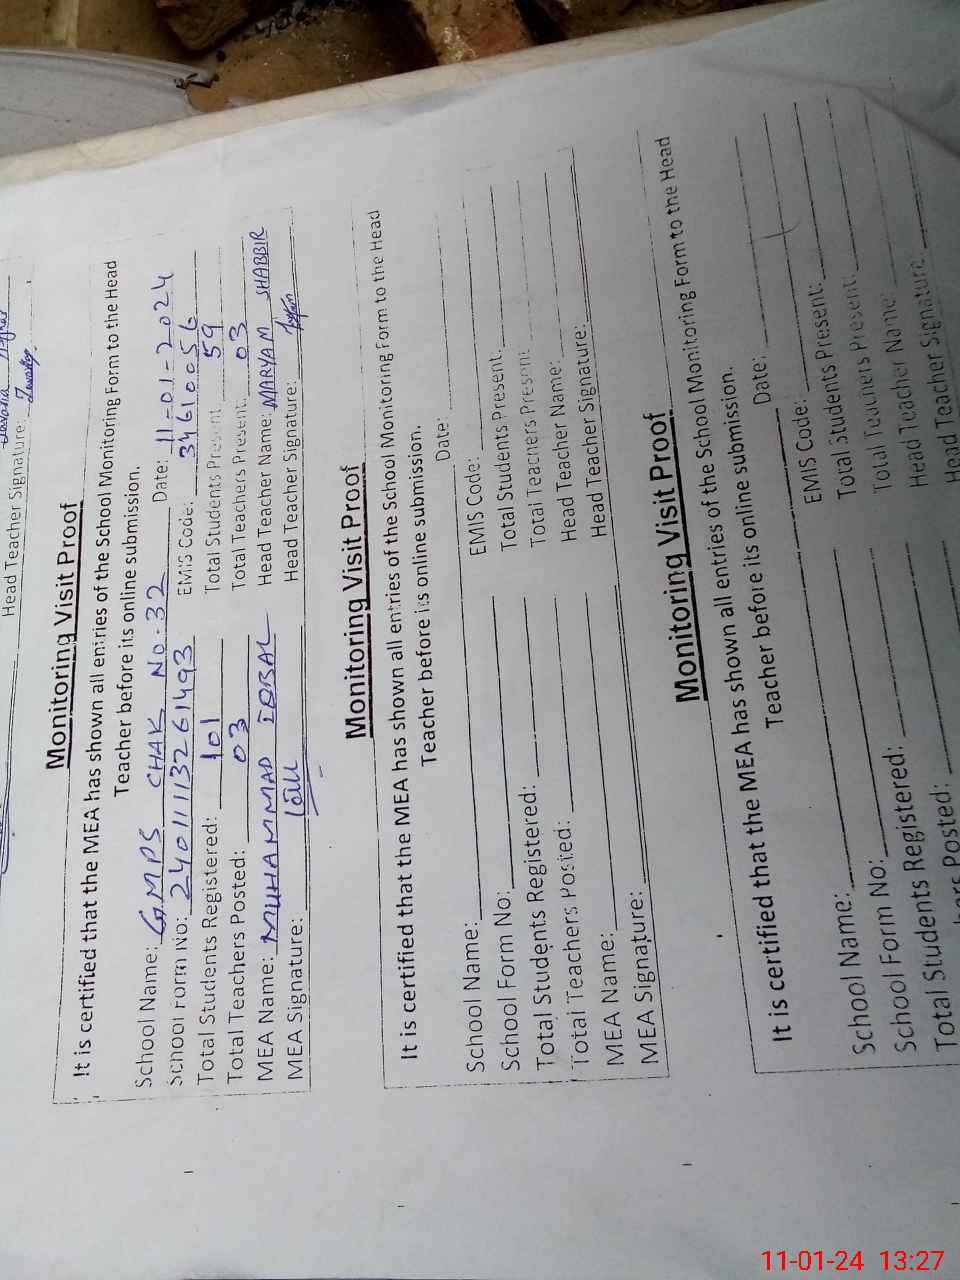 Head Teacher Signature:
Monitoring Visit Proof
It is certified that the MEA has shown all entries of the School Monitoring Form to the Head
Teacher before its online submission.
School Name: GMPS CHAK No. 32 Date: 11-01-2024
School Form No: 2401111326 1493 EMIS Code: 34610056
Total Students Registered: 101 Total Students Present: 59
Total Teachers Posted: 03 Total Teachers Present: 03
MEA Name: MUHAMMAD IQBAL Head Teacher Name: MARYAM SHABBIR
MEA Signature: Head Teacher Signature:
Monitoring Visit Proof
It is certified that the MEA has shown all entries of the School Monitoring Form to the Head
Teacher before its online submission.
School Name: Date:
School Form No: EMIS Code:
Total Students Registered: Total Students Present:
Total Teachers Posted: Total Teachers Present:
MEA Name: Head Teacher Name:
MEA Signature: Head Teacher Signature:
Monitoring Visit Proof
It is certified that the MEA has shown all entries of the School Monitoring Form to the Head
Teacher before its online submission.
School Name: Date:
School Form No: EMIS Code:
Total Students Registered: Total Students Present:
Posted: Total Teachers Present:
Head Teacher Name:
Head Teacher Signature:
11-01-24 13:27